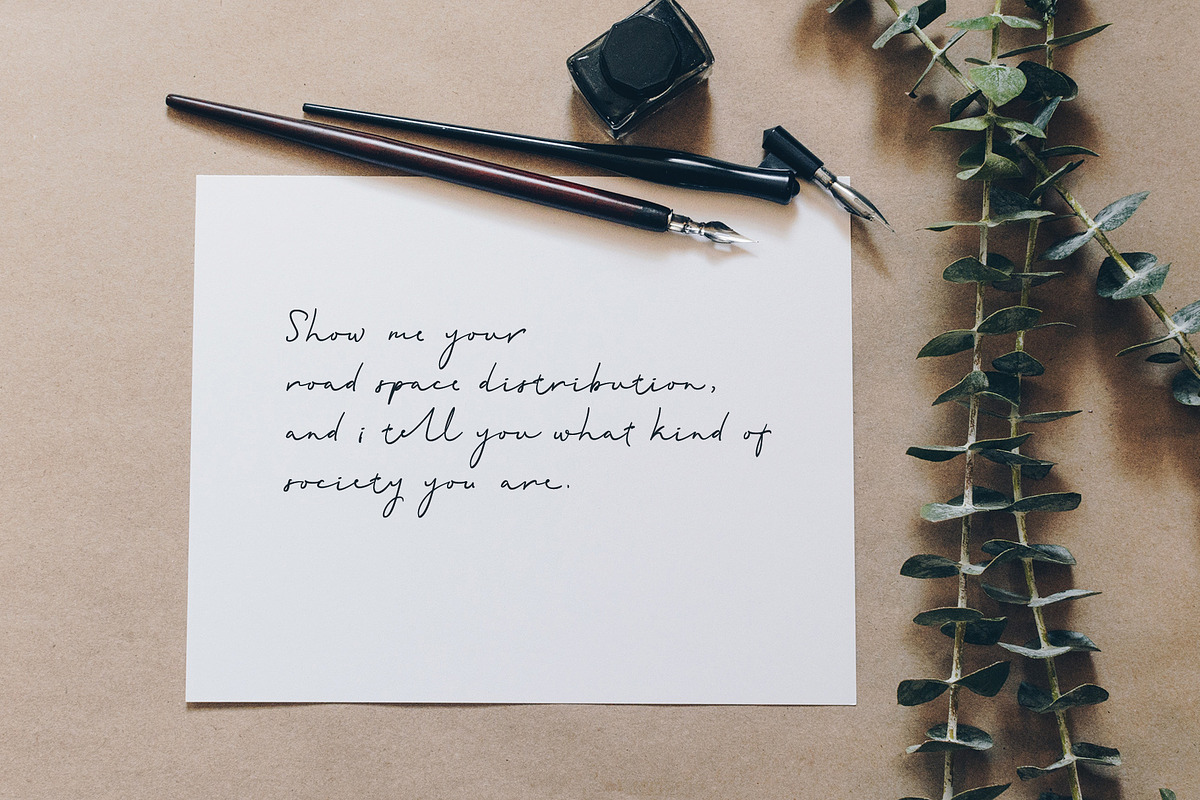 Show me your
road space distribution,
and i tell you what kind of
society you are.